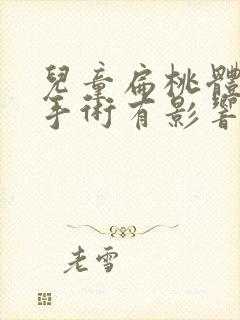 兒童扁桃體
手術有影響
老雪